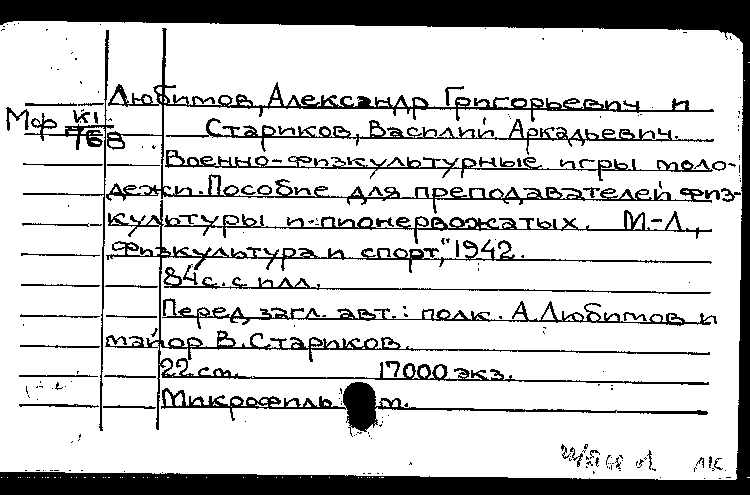 Любимов, Александр Григорьевич и
Мф К1/768
Стариков, Василий Аркадьевич.
Военно-физкультурные игры моло-
дежи. Пособие для преподавателей физ-
культуры и пионервожатых. М.-Л.,
„Физкультура и спорт", 1942.
84 с. с илл.
Перед загл. авт.: полк. А. Любимов и
майор В. Стариков.
22 cm. 17000 экз.
Микрофильм.